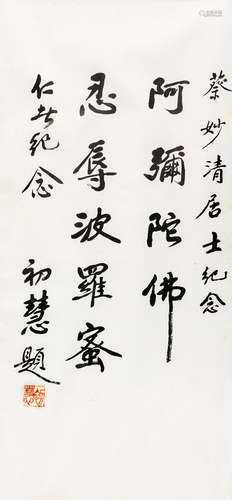 蔡妙清居士纪念
阿彌陀佛
忍辱波羅蜜
仁者纪念
初慧題